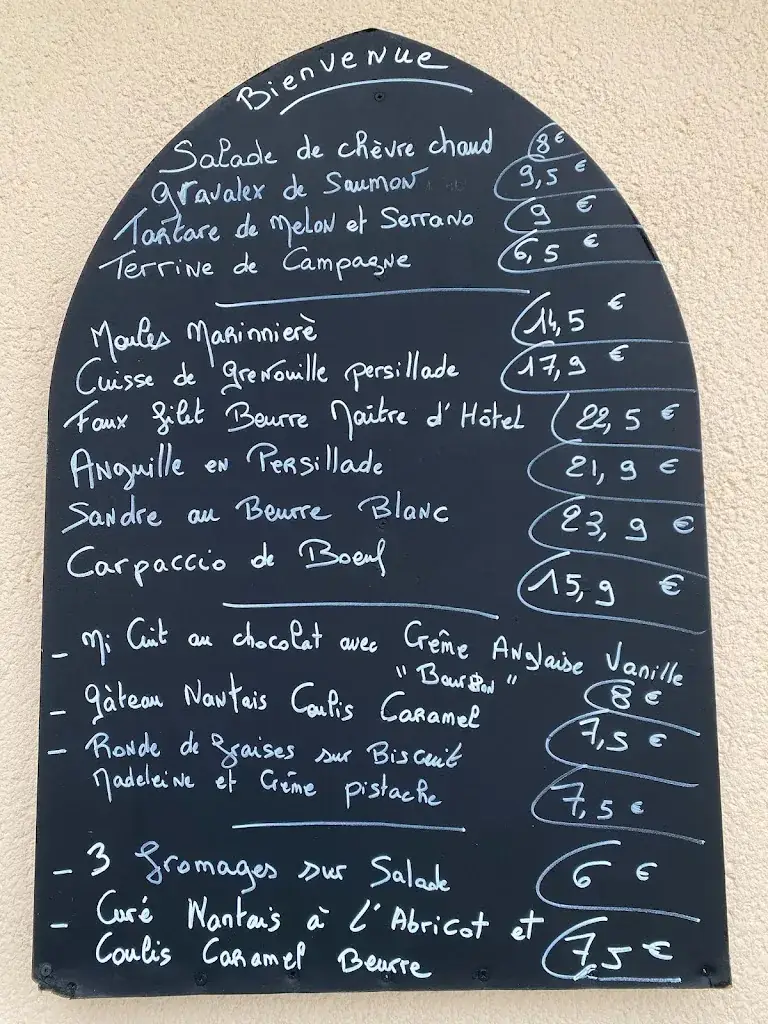 Bienvenue
Salade de chèvre chaud 8€
gravalex de Saumon 9,5 €
Tartare de Melon et Serrano 9 €
Terrine de Campagne 6,5 €
Moules Marinnierè 14,5 €
Cuisse de grenouille persillade 17,9 €
Faux filet Beurre Maître d'Hôtel 22,5 €
Anguille en Persillade 21,9 €
Sandre au Beurre Blanc 23,9 €
Carpaccio de Boeuf 15,9 €
- Mi Cuit au chocolat avec Crême Anglaise Vanille
"Bourbon" 8 €
- gâteau Nantais Coulis Caramel 7,5 €
- Ronde de fraises sur Biscuit
Madeleine et Crême pistache 7,5 €
- 3 fromages sur Salade 6 €
- Curé Nantais à l'Abricot et
Coulis Caramel Beurre 7,5 €